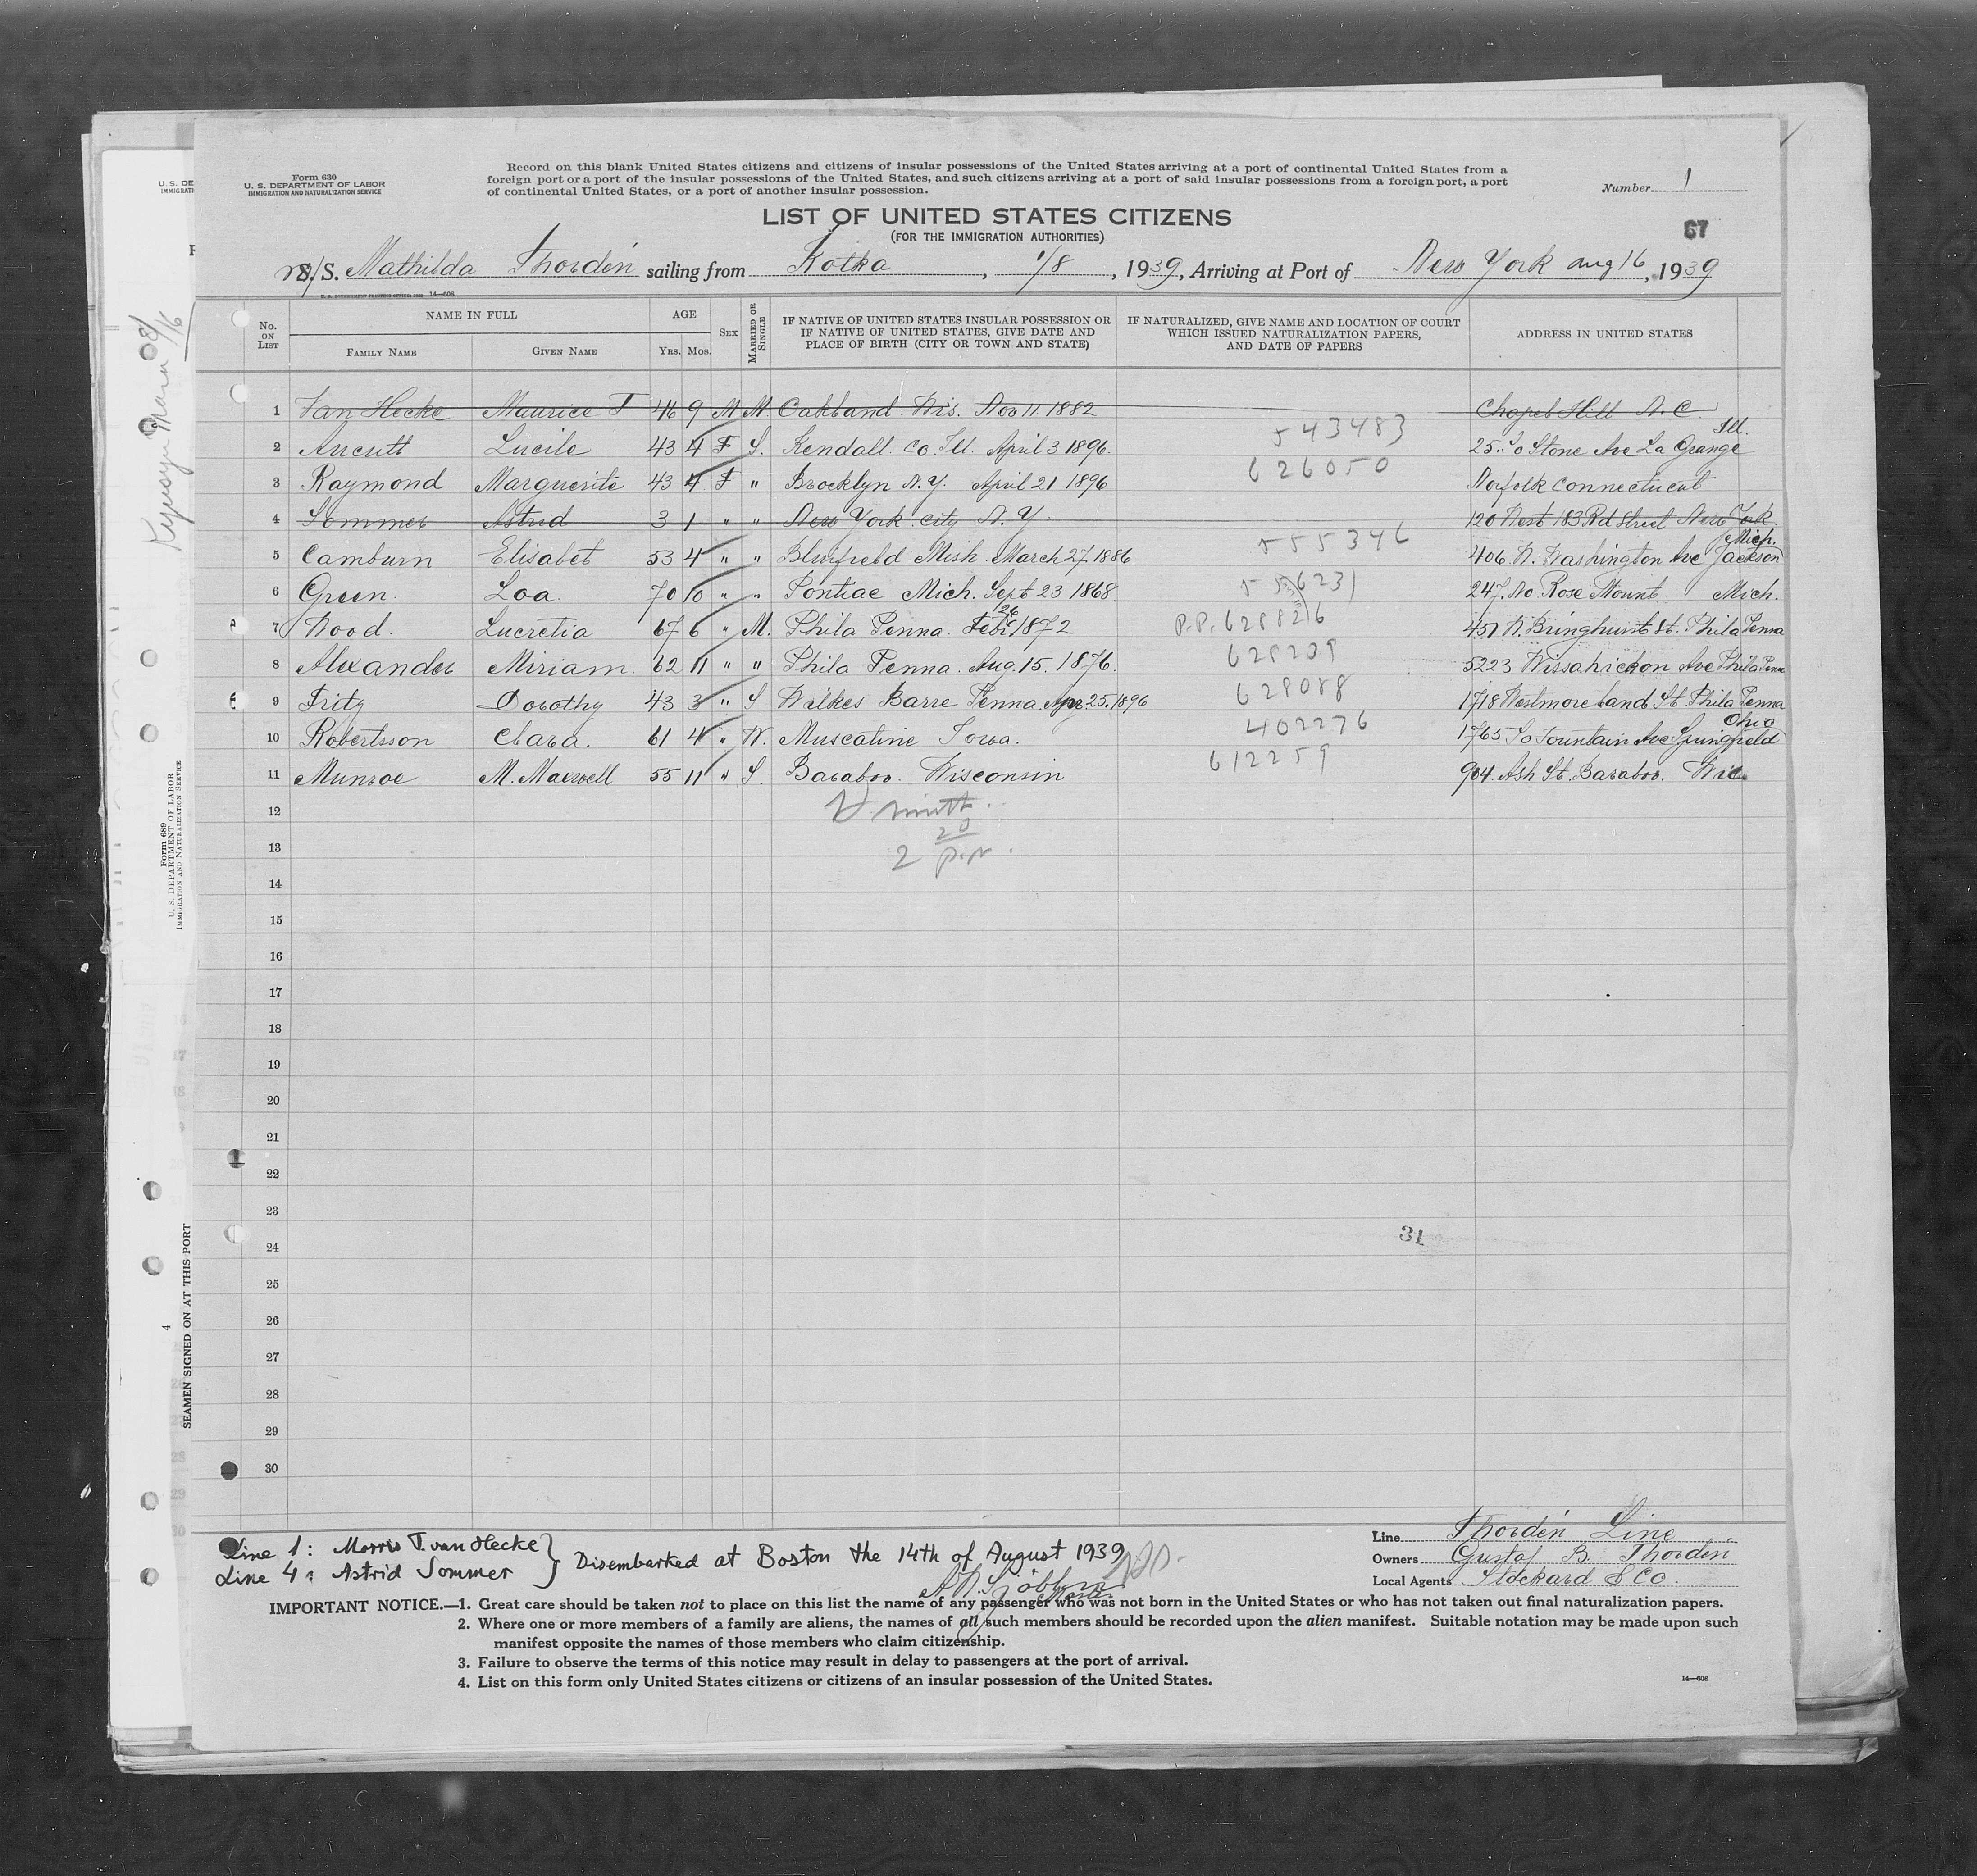 Form 630
U. S. DEPARTMENT OF LABOR
IMMIGRATION AND NATURALIZATION SERVICE
Record on this blank United States citizens and citizens of insular possessions of the United States arriving at a port of continental United States from a
foreign port or a port of the insular possessions of the United States, and such citizens arriving at a port of said insular possessions from a foreign port, a port
of continental United States, or a port of another insular possession.
Number 1
LIST OF UNITED STATES CITIZENS
(FOR THE IMMIGRATION AUTHORITIES)
67
S. Mathilda Thordén sailing from Kotka, 1/8, 1939, Arriving at Port of New York Aug 16, 1939
No. ON LIST
NAME IN FULL
FAMILY NAME
GIVEN NAME
AGE
Yrs. Mos.
SEX
MARRIED OR SINGLE
IF NATIVE OF UNITED STATES INSULAR POSSESSION OR
IF NATIVE OF UNITED STATES, GIVE DATE AND
PLACE OF BIRTH (CITY OR TOWN AND STATE)
IF NATURALIZED, GIVE NAME AND LOCATION OF COURT
WHICH ISSUED NATURALIZATION PAPERS,
AND DATE OF PAPERS
ADDRESS IN UNITED STATES
1 Van Hecke Maurice T 46 9 M M Oakland Wis. Nov 11. 1882 Chapel Hill N.C.
2 Aucutt Lucile 43 4 F S. Kendall. Co. Ill. April 3 1896. 543483 25. So Stone Ave La Grange Ill.
3 Raymond Marguerite 43 4 F " Brocklyn N.Y. April 21 1896 626050 Norfolk Connectucut
4 Sommer Astrid 3 1 " " New York. City N.Y. 120 West 183 Rd Street New York
5 Camburn Elisabet 53 4 " " Blurfield Mish. March 27 1886 555346 406. W. Washington Ave Jackson Mich.
6 Green. Loa 70 10 " " Pontiac Mich. Sept 23 1868. 247. No Rose Mount. Mich.
7 Wood. Lucretia 67 6 " M. Phila Penna. Feb. 26 1872 P.P. 628826 451 W. Bringhurst St. Phila Penna
8 Alexander Miriam. 62 11 " " Phila Penna. Aug. 15. 1876. 628239 5223 Wissahickon Ave Phila Penna
9 Fritz Dorothy 43 3 " S Wilkes Barre Penna. Apr 25. 1896 628088 1718 Westmoreland St Phila Penna
10 Robertsson Clara. 61 4 " W. Muscatine Iowa. 402276 1765 So Fountain Ave Springfield Ohio
11 Munroe M. Maxwell 55 11 " S. Baraboo. Wisconsin 612259 904. Ash St. Baraboo. Wic.
12
20
13
2 p.p.
14
15
16
17
18
19
20
21
22
23
24
31
25
26
27
28
29
30
Line 1: Morris T. van Hecke
Line 4: Astrid Sommer
} Disembarked at Boston the 14th of August 1939
Master
Line Thordén Line
Owners Gustaf B. Thordén
Local Agents Stockard & Co.
IMPORTANT NOTICE.—1. Great care should be taken not to place on this list the name of any passenger who was not born in the United States or who has not taken out final naturalization papers.
2. Where one or more members of a family are aliens, the names of all such members should be recorded upon the alien manifest. Suitable notation may be made upon such
manifest opposite the names of those members who claim citizenship.
3. Failure to observe the terms of this notice may result in delay to passengers at the port of arrival.
4. List on this form only United States citizens or citizens of an insular possession of the United States.
14—608
Form 689
U. S. DEPARTMENT OF LABOR
IMMIGRATION AND NATURALIZATION SERVICE
SEAMEN SIGNED ON AT THIS PORT
4